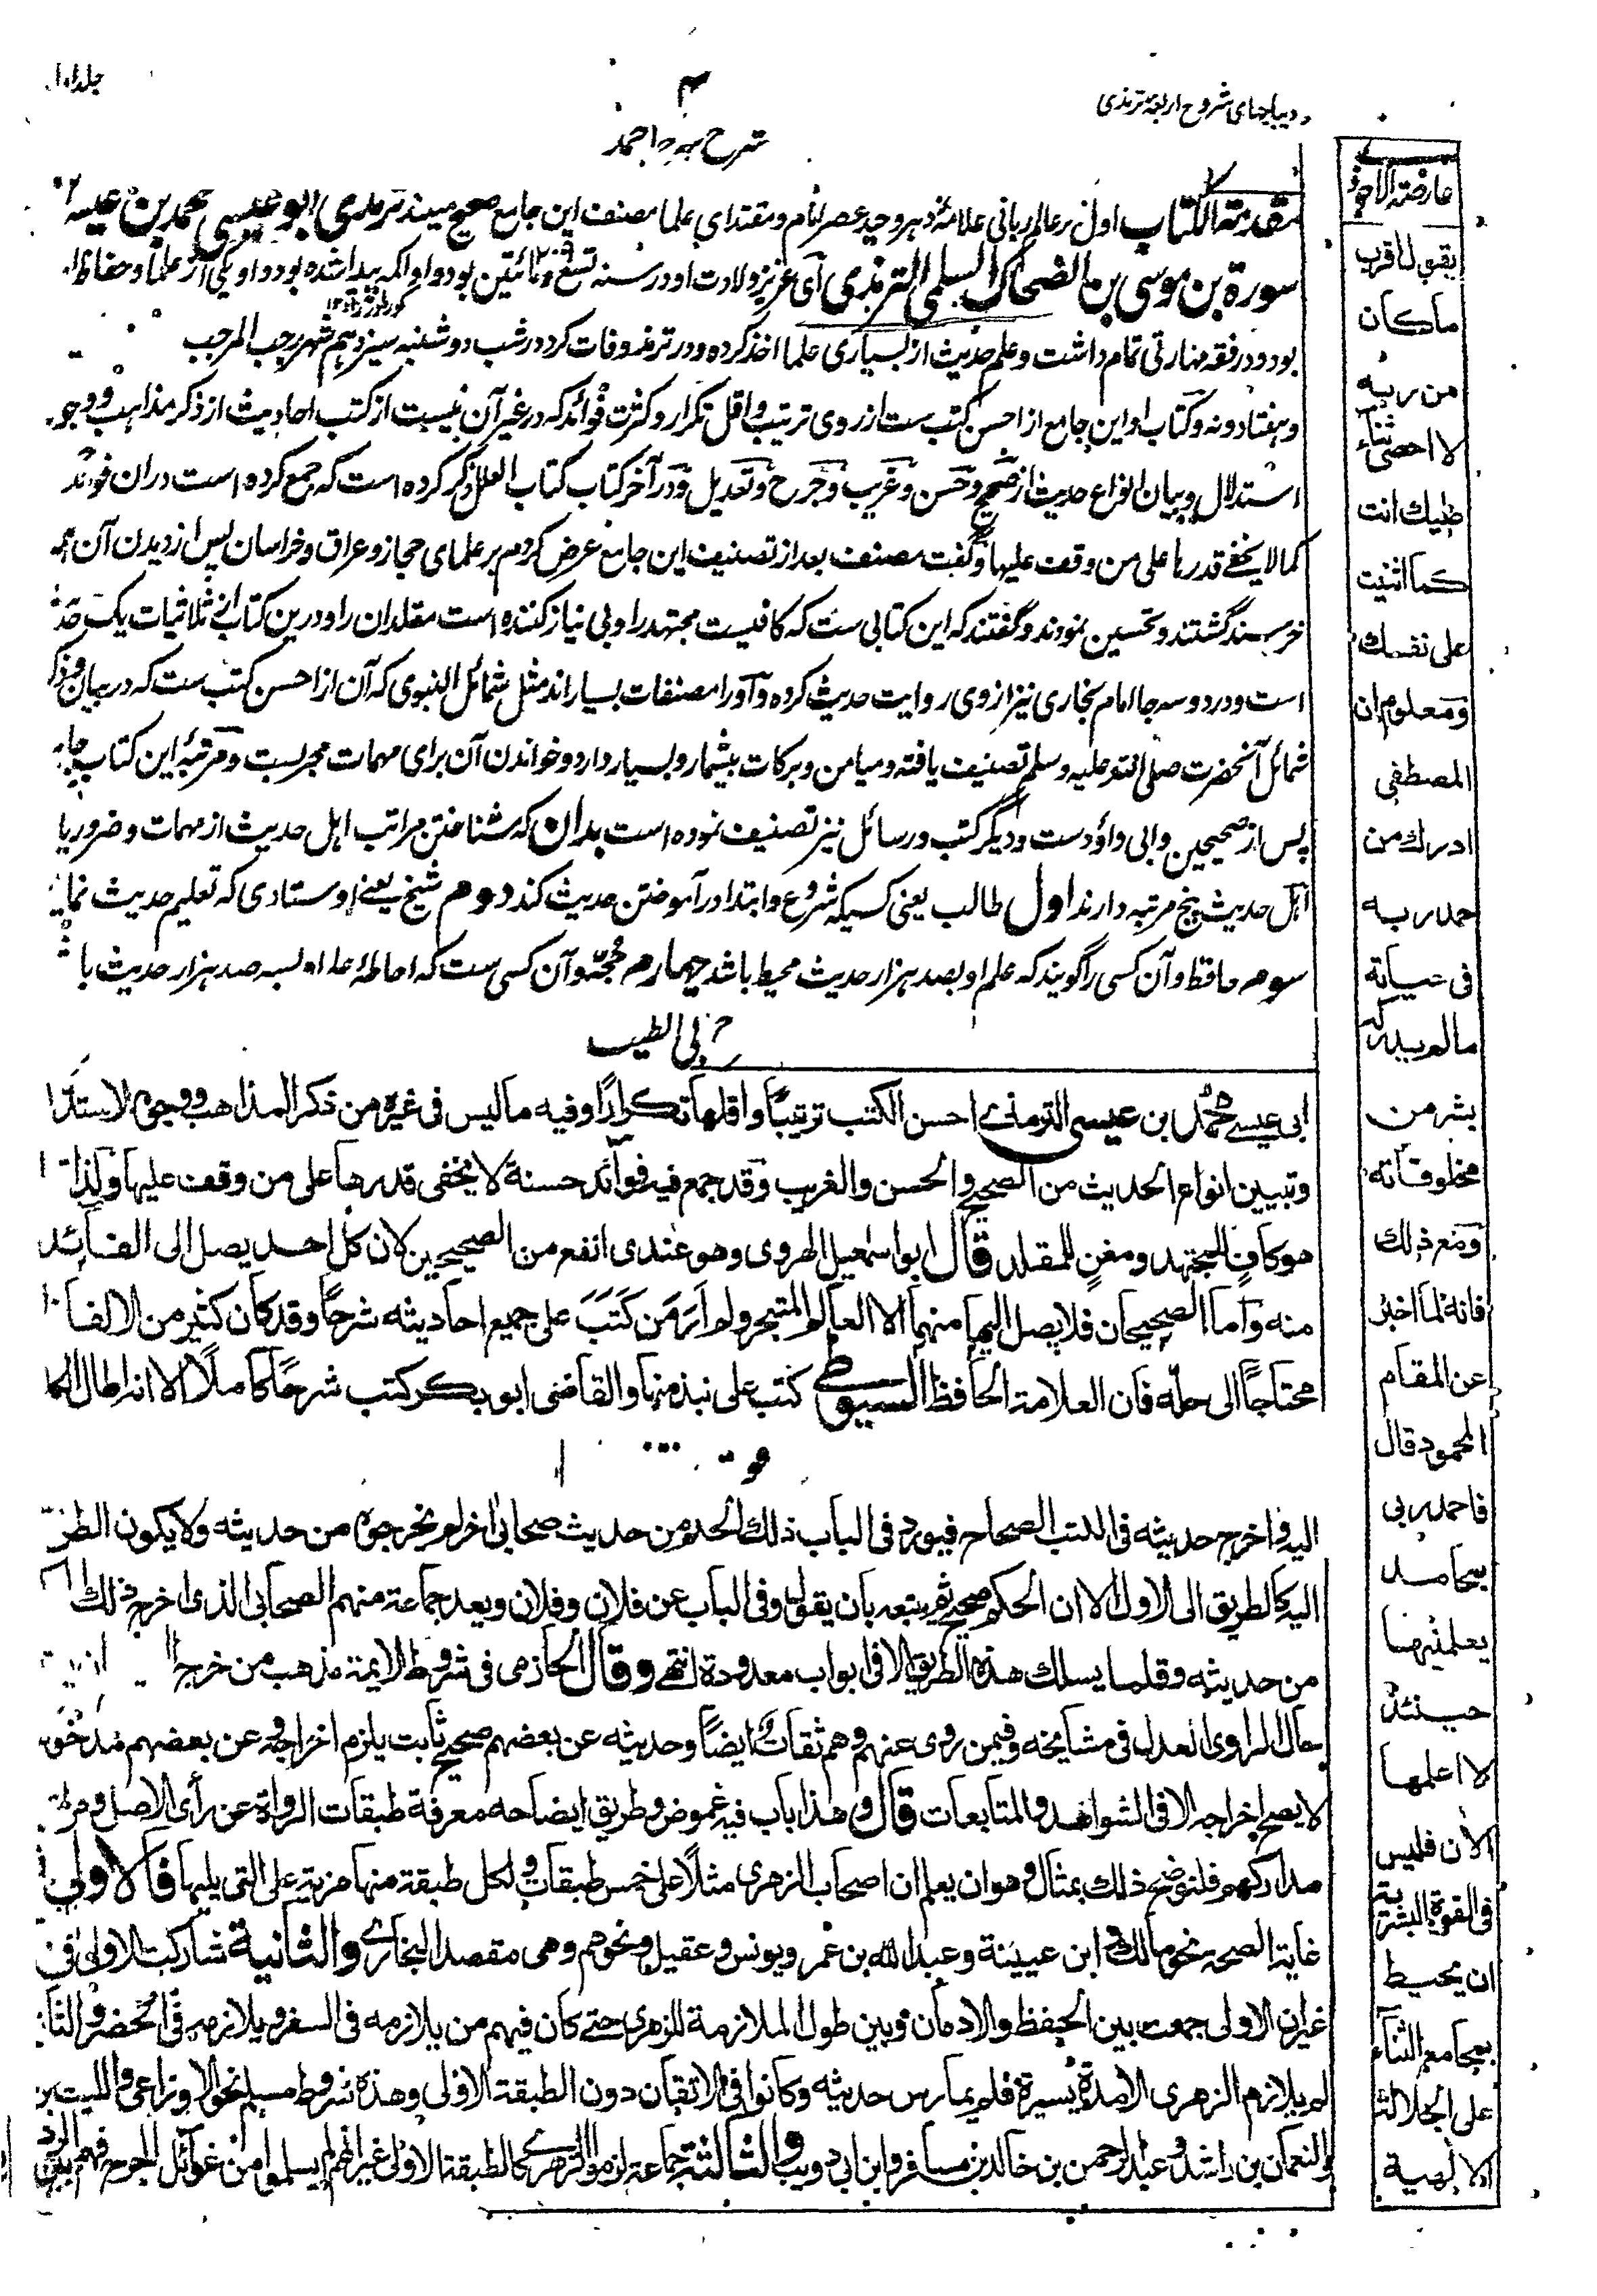 دیباچهای شروح اربعهٔ ترمذی
۴
جلد اول
شرح سراج احمد
مقدمة الکتاب اول بر عالم ربانی علامهٔ دهر وحید عصر امام و مقتدای علما مصنف این جامع صحیح مسند ترمذی ابو عیسی محمد بن عیسی
سورة بن موسی بن الضحاک السلمی الترمذی ای عزیز ولادت او در سنه تسع و مائتین بود و او اکمه پیدا شده بود و او یکی از علما و حفاظ
۲۰۹
بود و در فقه مهارتی تمام داشت و علم حدیث از بسیاری علما اخذ کرده و در ترمذ وفات کرد در شب دوشنبه سیزدهم شهر رجب المرجب
و هفتاد و نه و کتاب او این جامع از احسن کتب ست از روی ترتیب و اقل تکرار و کثرت فوائد که در غیر آن نیست از کتب احادیث از ذکر مذاهب و وجوه
استدلال و بیان انواع حدیث از صحیح و حسن و غریب و جرح و تعدیل و در آخر کتاب کتاب العلل ذکر کرده است که جمع کرده است دران فوائد
کما لا یخفی قدرها علی من وقف علیها و گفت مصنف بعد از تصنیف این جامع عرض کردم بر علمای حجاز و عراق و خراسان پس از دیدن آن همه
خرسند گشتند و تحسین نمودند و گفتند که این کتابی ست که کافیست مجتهد را و بی نیاز کننده است مقلدان را و درین کتاب از ثلاثیات یک حدیث
است و در دو سه جا امام بخاری نیز از وی روایت حدیث کرده و او را مصنفات بسیار اند مثل شمائل النبوی که آن از احسن کتب ست که در بیان و ذکر
شمائل آنحضرت صلی الله علیه وسلم تصنیف یافته و میامن و برکات بیشمار و بسیار دارد و خواندن آن برای مهمات مجربست و مرتبهٔ این کتاب جامع
پس از صحیحین و ابی داؤدست و دیگر کتب و رسائل نیز تصنیف نموده است بدان که شناختن مراتب اهل حدیث از مهمات و ضروریا
اهل حدیث پنج مرتبه دارند اول طالب یعنی کسیکه شروع و ابتدا در آموختن حدیث کند دوم شیخ یعنے اوستادی که تعلیم حدیث نماید
سوم حافظ و آن کسی را گویند که علم او بصد هزار حدیث محیط باشد چهارم حجة و آن کسی ست که احاطهٔ علم او بسه صد هزار حدیث با
ابی الطیب
ابی عیسے محمد بن عیسی الترمذے احسن الکتب ترتیباً و اقلها تکراراً و فیه ما لیس فی غیره من ذکر المذاهب و وجوه الاستدلا
و تبیین انواع الحدیث من الصحیح و الحسن و الغریب و قد جمع فیه فوائد حسنة لا یخفی قدرها علی من وقف علیها و لذا
هو کافٍ للمجتهد و مغنٍ للمقلد قال ابو اسمعیل الهروی و هو عندی انفع من الصحیحین لان کل احد یصل الی الفائد
منه و اما الصحیحان فلا یصل الیها منهما الا العالم المتبحر و لم ارَ مَن کَتَبَ علی جمیع احادیثه شرحاً و قد کان کثیر من الالفا
محتاجاً الی حلّه فان العلامة الحافظ السیوطی کتب علی نبذ منها و القاضی ابو بکر کتب شرحاً کاملاً الا انه اطال الکلا
الیه و اخرج حدیثه فی الکتب الصحاح فیورد فی الباب ذلک الحکم من حدیث صحابی اخر لم یخرجوه من حدیثه و لا یکون الطریق
الیه کالطریق الی الاول الا ان الحکم صحیح ثم یتبعه بان یقول و فی الباب عن فلان و فلان و یعد جماعة منهم الصحابی الذی اخرج ذلک
من حدیثه و قلما یسلک هذه الطریق الا فی ابواب معدودة انتهی و قال الحازمی فی شروط الایمة مذهب من خرج
حال الراوی العدل فی مشایخه و فیمن روی عنهم و هم ثقات ایضاً و حدیثه عن بعضهم صحیح ثابت یلزم اخراجه و عن بعضهم مدخول
لا یصح اخراجه الا فی الشواهد و المتابعات قال و هذا باب فیه غموض و طریق ایضاحه معرفة طبقات الرواة عن رأی الاصل و مراتب
مدارکهم فلنوضح ذلک بمثال و هو ان یعلم ان اصحاب الزهری مثلاً علی خمس طبقات و لکل طبقة منها مزیة علی التی یلیها فالاولی
غایة الصحة نحو مالک و ابن عیینة و عبد الله بن عمر و یونس و عقیل و نحوهم و هی مقصد البخاری و الثانیة شارکت الاولی فی
غیر ان الاولی جمعت بین الحفظ و الاتقان و بین طول الملازمة للزهری حتے کان فیهم من یلازمه فی السفر و یلازمه فی الحضر و الثا
لم یلازم الزهری الا مدة یسیرة فلم یمارس حدیثه و کانوا فی الاتقان دون الطبقة الاولی و هذه شروط مسلم نحو الاوزاعی و اللیث بن
و النعمان بن راشد و عبد الرحمن بن خالد بن مسافر و ابن ابی ذویب و الثالثة جماعة لزموا الزهری کالطبقة الاولی غیر انهم لم یسلموا من غوائل الجرح فهم بین الرد
عارضة الاحوذی
یقول لما قرب
ما کان
من ربه
لا احصی ثناء
علیک انت
کما اثنیت
علی نفسک
و معلوم ان
المصطفی
ادرک من
حمد ربه
فی حیاته
ما لم یدرکه
بشر من
مخلوقاته
و مع ذلک
فانه لما اخبر
عن المقام
المحمود قال
فاحمد ربی
بمحامد
یعلمنیها
حینئذ
لا اعلمها
الان فلیس
فی القوة البشریة
ان یحیط
بمجامع الثناء
علی الجلالة
الالهیة